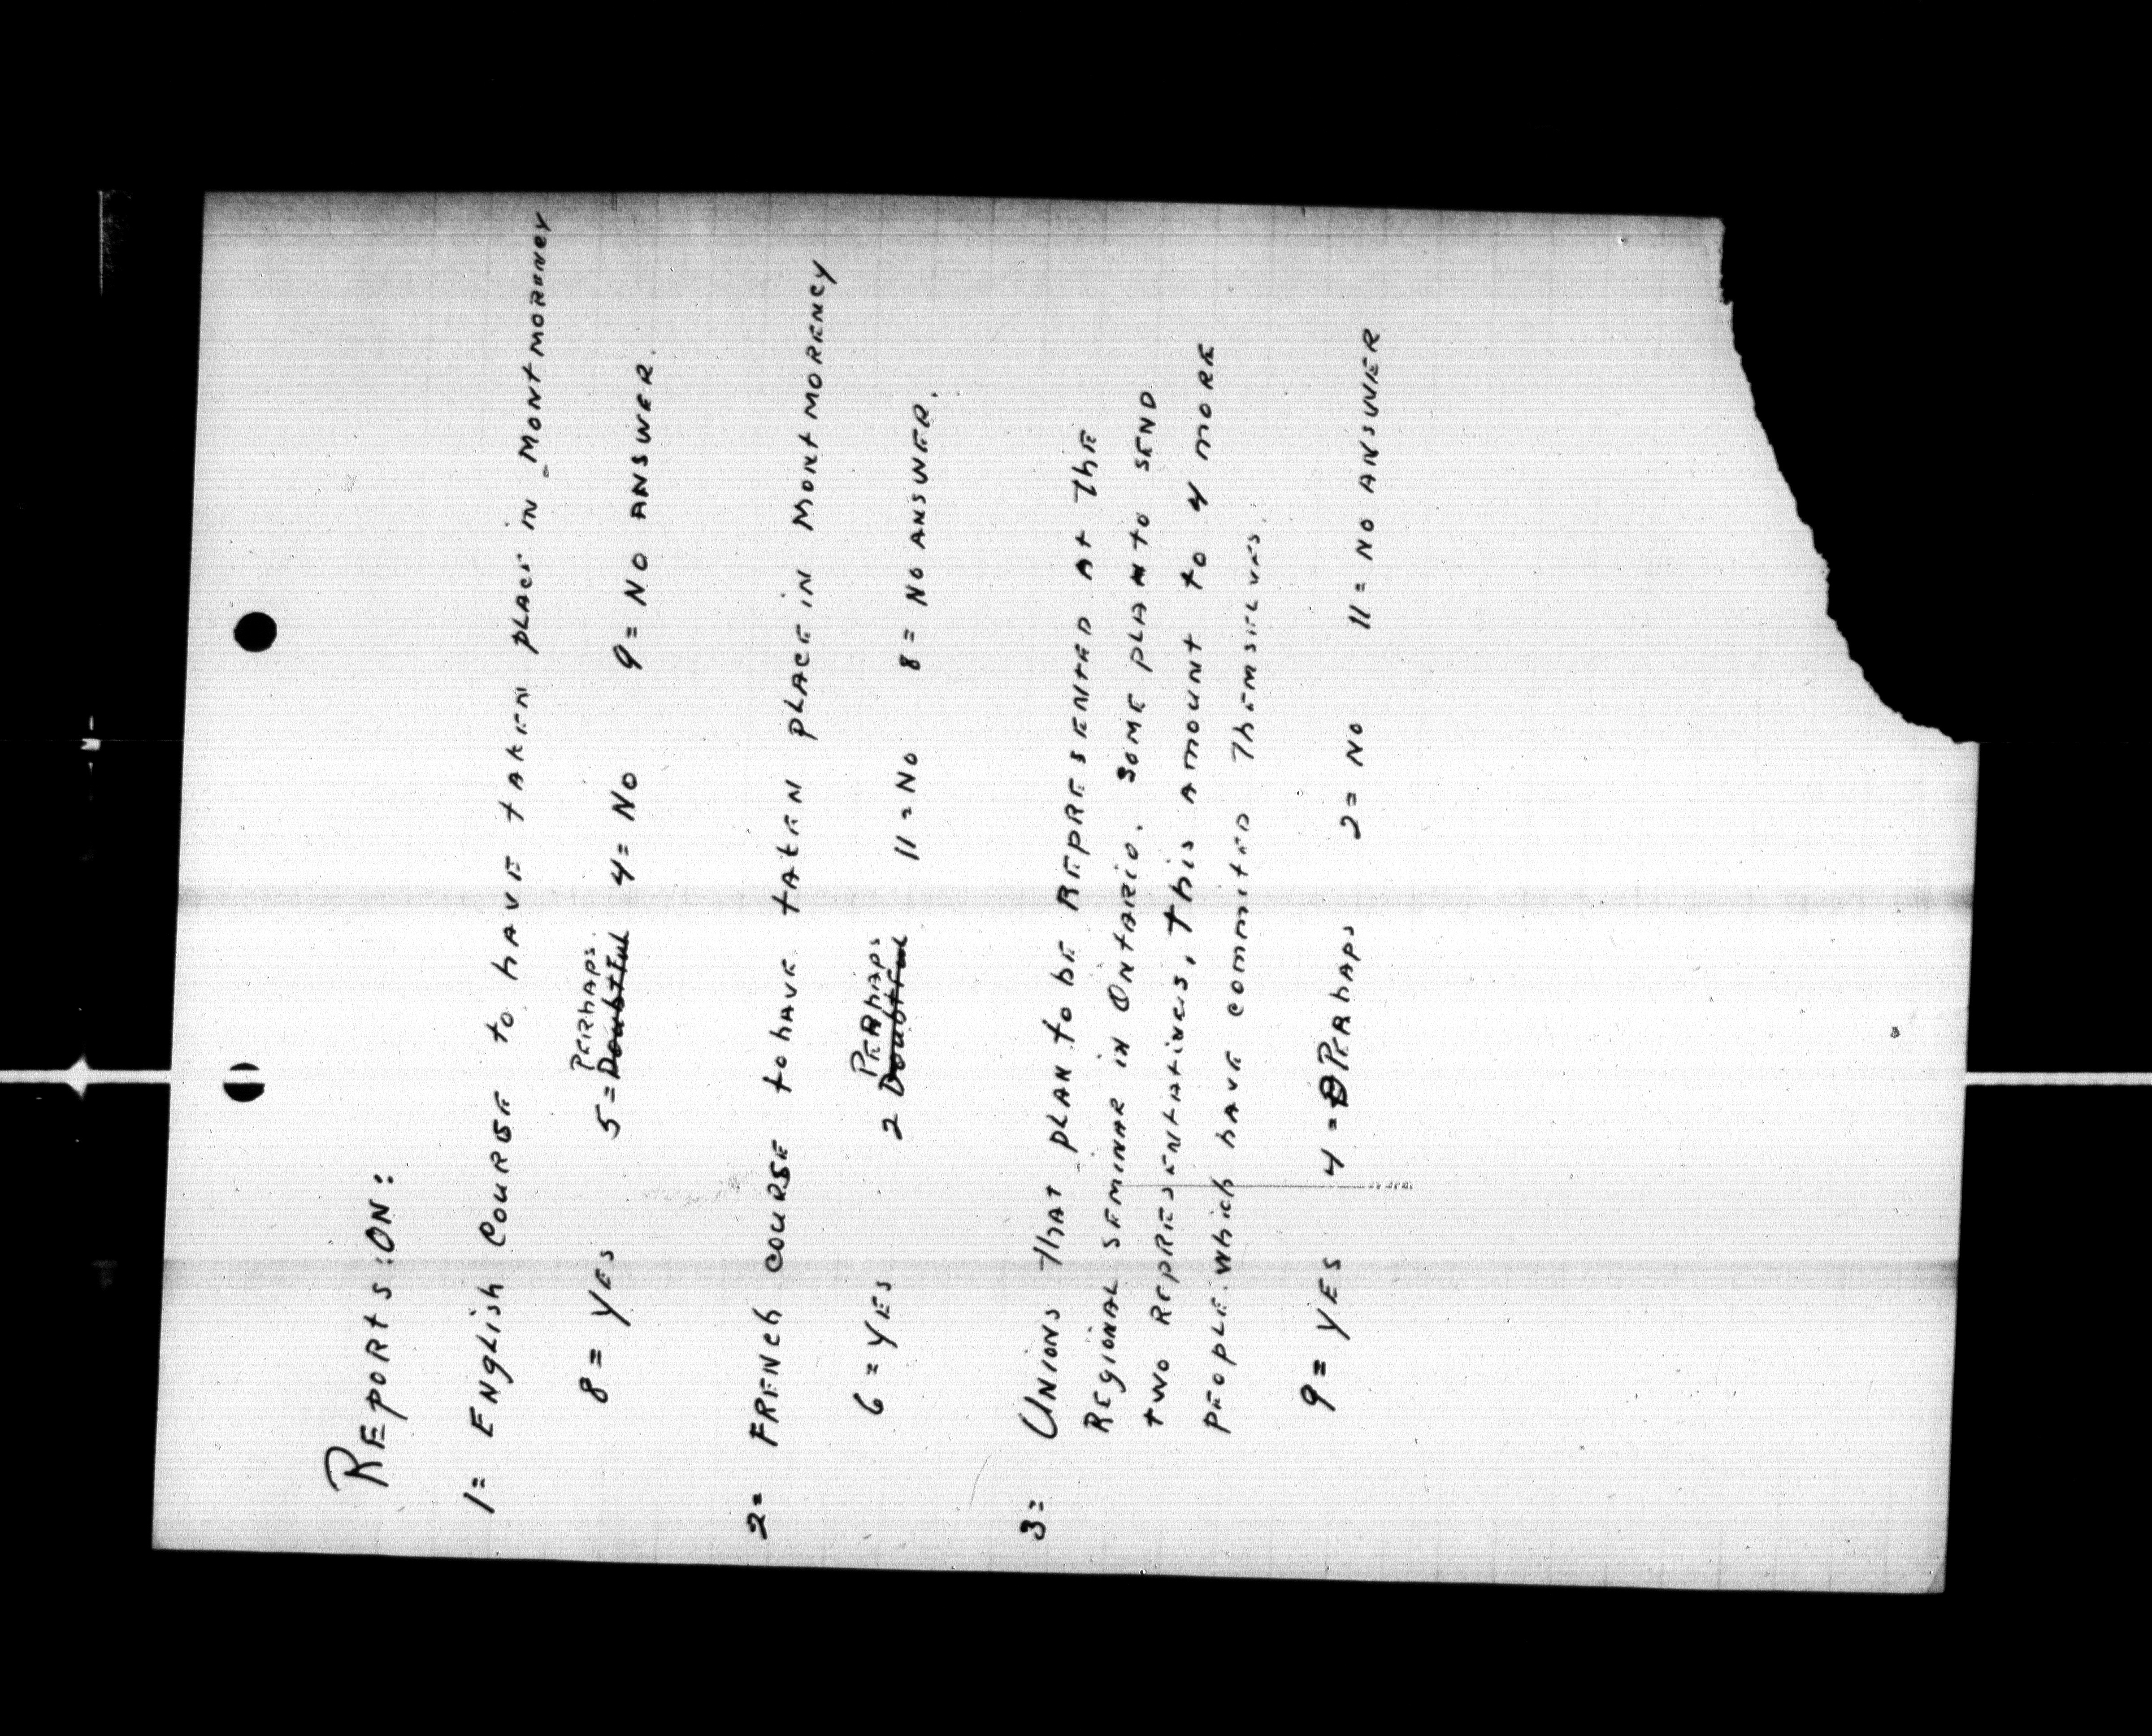 REPORTS: ON:
1= ENGLISH COURSE to hAVE tAKEN PLACE IN MONTMORENCY
PERhAPS
8= YES 5= Doubtful 4= No 9= NO ANSWER.
2= FRENCh COURSE to hAVE tAKEN PLACE IN MONTMORENCY
PERhAPS
6= YES 2 Doubtful 11= No 8= NO ANSWER.
3= UNIONS ThAT PLAN to bE REPRESENTED At ThE
REGIONAL SEMINAR IN ONTARIO. SOME PLAN to SEND
TWO REPRESENTATIVES, This AMOUNT to 4 MORE
PEOPLE. Which hAVE COMMITED ThEMSELVES.
9= YES 4= PERhAPS 2= No 11= NO ANSWER